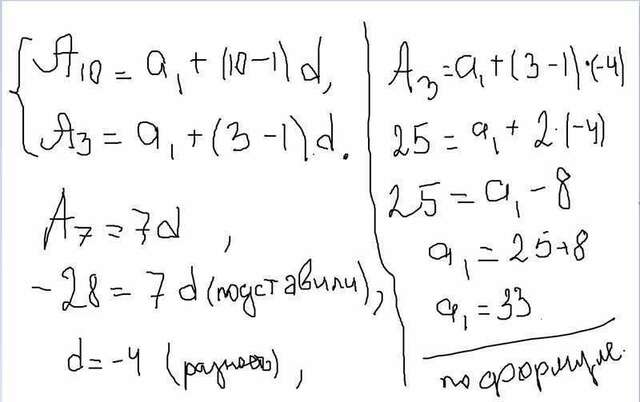 A₁₀ = a₁ + (10-1) d,
A₃ = a₁ + (3-1).d.
A₇ = 7d,
-28 = 7d (подставили),
d = -4 (разность),
A₃ = a₁ + (3-1)·(-4)
25 = a₁ + 2·(-4)
25 = a₁ - 8
a₁ = 25+8
a₁ = 33
по формуле.